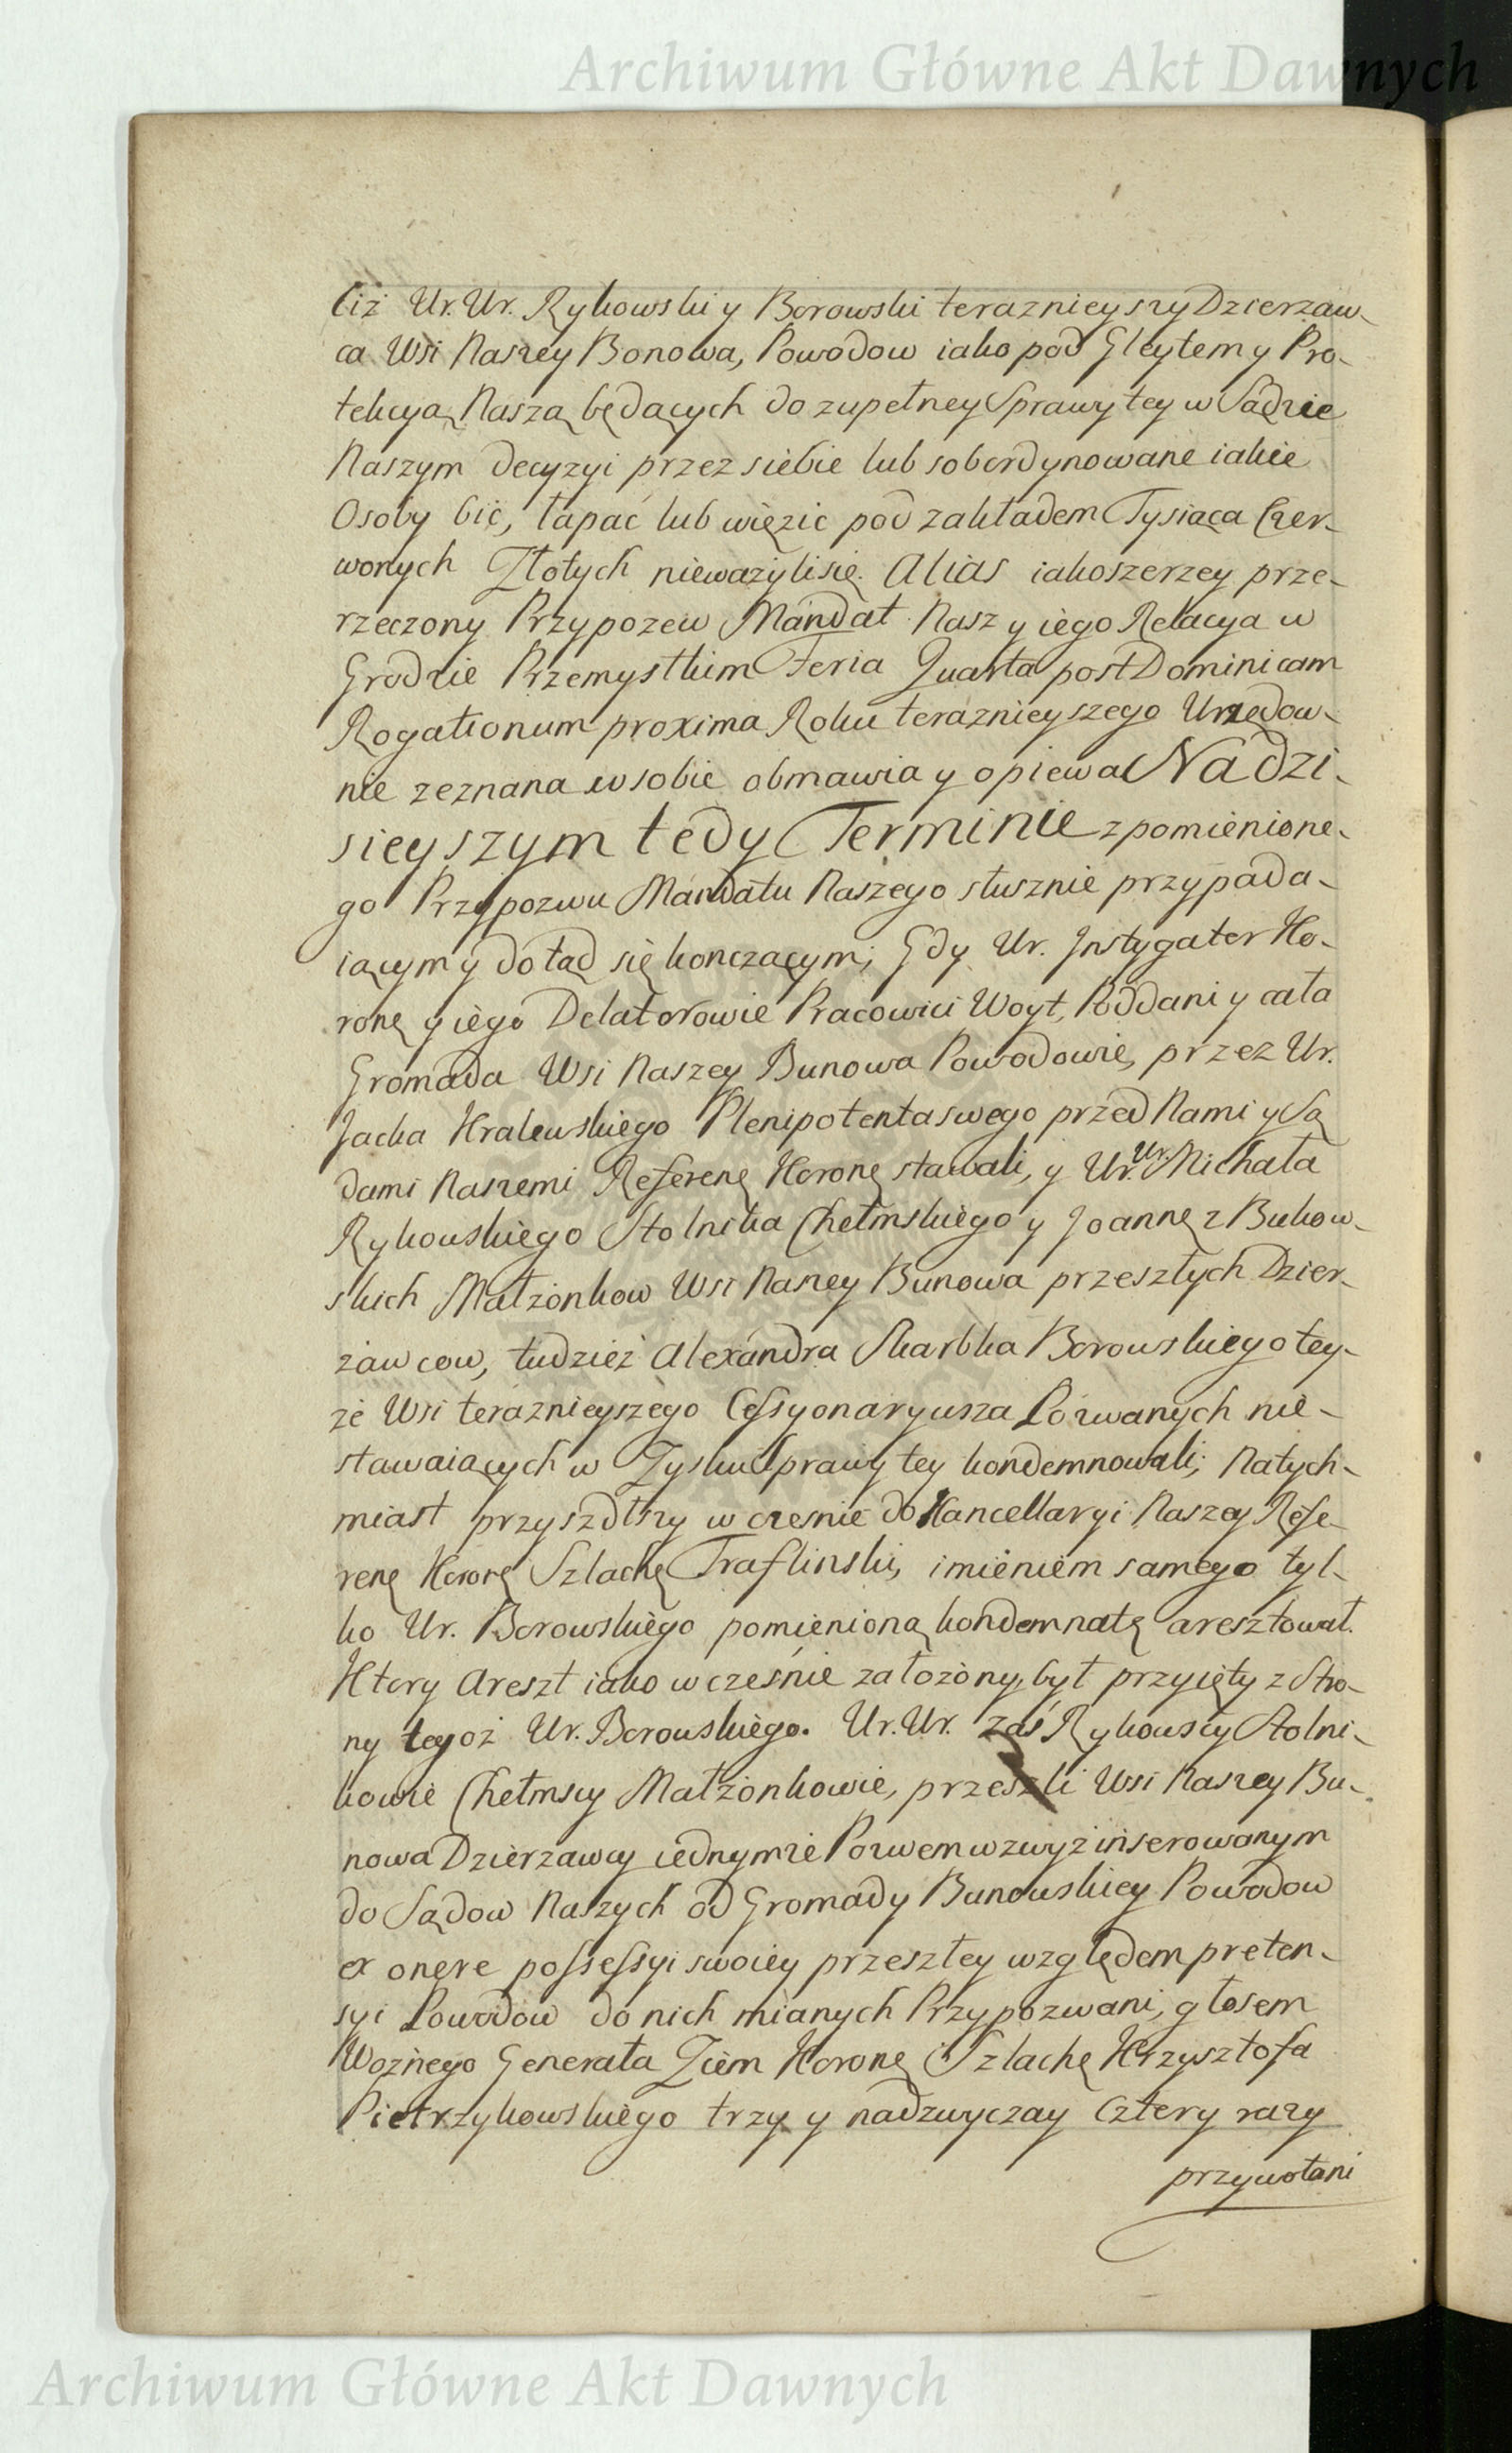 Archiwum Główne Akt Dawnych
Ciż Ur. Ur. Rykowski y Borowski teraznieyszy Dzierzaw-
ca Wsi Naszey Bonowa, Powodow iako pod Gleytem y Pro-
tekcyą Naszą będących do zupełney Sprawy tey w Sądzie
Naszym decyzyi przez siebie lub sobordynowane iakie
Osoby bić, łapać lub więzić pod zakładem Tysiąca Czer-
wonych Złotych nieważyli się. Alias iako szerzey prze-
rzeczony Przypozew Mandat Nasz y iego Relacya w
Grodzie Przemyslkim Feria Quarta post Dominicam
Rogationum proxima Roku teraznieyszego Urzędow-
nie zeznana w sobie obmawia y opiewa Na dzi-
sieyszym tedy Terminie z pomienione-
go Przypozwu Mandatu Naszego słusznie przypada-
iącym y dotąd się konczącym; Gdy Ur. Instygator Ko-
ronę y iego Delatorowie Pracowici Woyt, Poddani y cała
Gromada Wsi Naszey Bunowa Powodowie, przez Ur.
Jacka Kralewskiego Plenipotenta swego przed Nami y Są
dami Naszemi Referenę Koronę stawali, y Ur. Ur. Michała
Rykowskiego Stolnika Chełmskiego y Joannę z Bukow-
skich Małżonkow Wsi Naszey Bunowa przeszłych Dzier-
żawcow, tudzież Alexandra Skarbka Borowskiego tey-
że Wsi teraznieyszego Cessyonaryusza Pozwanych nie-
stawaiących w Zysku Sprawy tey kondemnowali; Natych-
miast przyszdłszy w czesnie do Kancellaryi Naszey Refe-
renę Koronę Szlachę Traflinski, imieniem samego tyl-
ko Ur. Borowskiego pomienioną kondemnatę aresztował.
Ktory Areszt iako w cześnie założony, był przyięty z Stro-
ny tegoż Ur. Borowskiego. Ur. Ur. zaś Rykowscy Stolni-
kowie Chełmscy Małżonkowie, przeszli Wsi Naszey Bu-
nowa Dzierżawcy iednymże Pozwem wzwyż inserowanym
do Sądow Naszych od Gromady Bunowskiey Powodow
ex onere possessyi swoiey przeszłey względem preten-
syi Powodow do nich mianych Przypozwani, głosem
Woźnego Generała Ziem Koronę Szlachę Krzysztofa
Pietrzykowskiego trzy y nadzwyczay Cztery razy
przywołani
Archiwum Główne Akt Dawnych